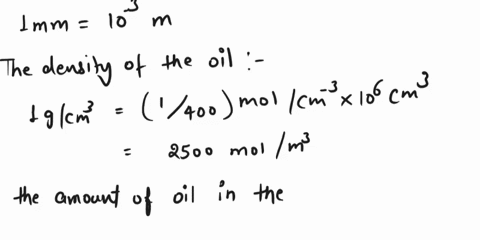 1mm = 10⁻³ m
The density of the oil :-
1g/cm³ = (1/400) mol/cm⁻³ × 10⁶ cm³
= 2500 mol/m³
the amount of oil in the